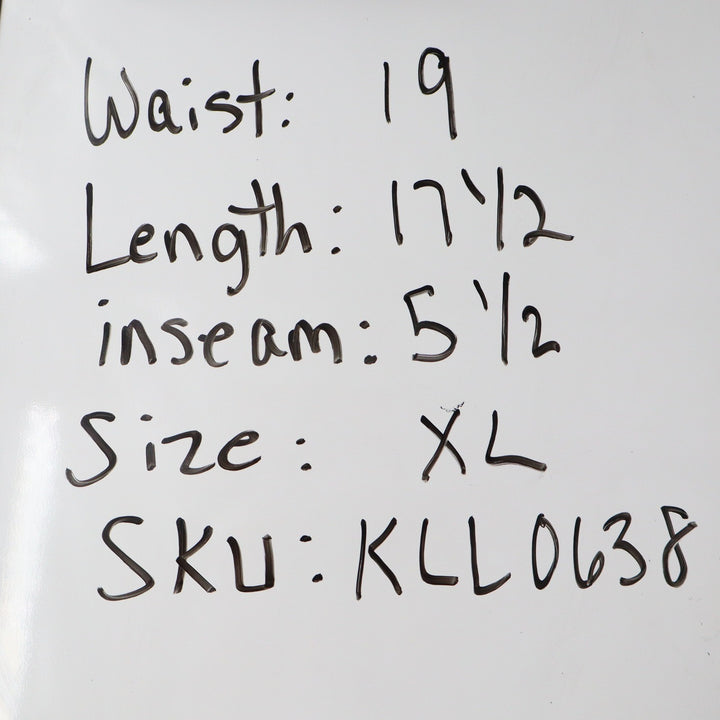 Waist: 19
Length: 17 1/2
inseam: 5 1/2
Size: XL
SKU: KLL0638